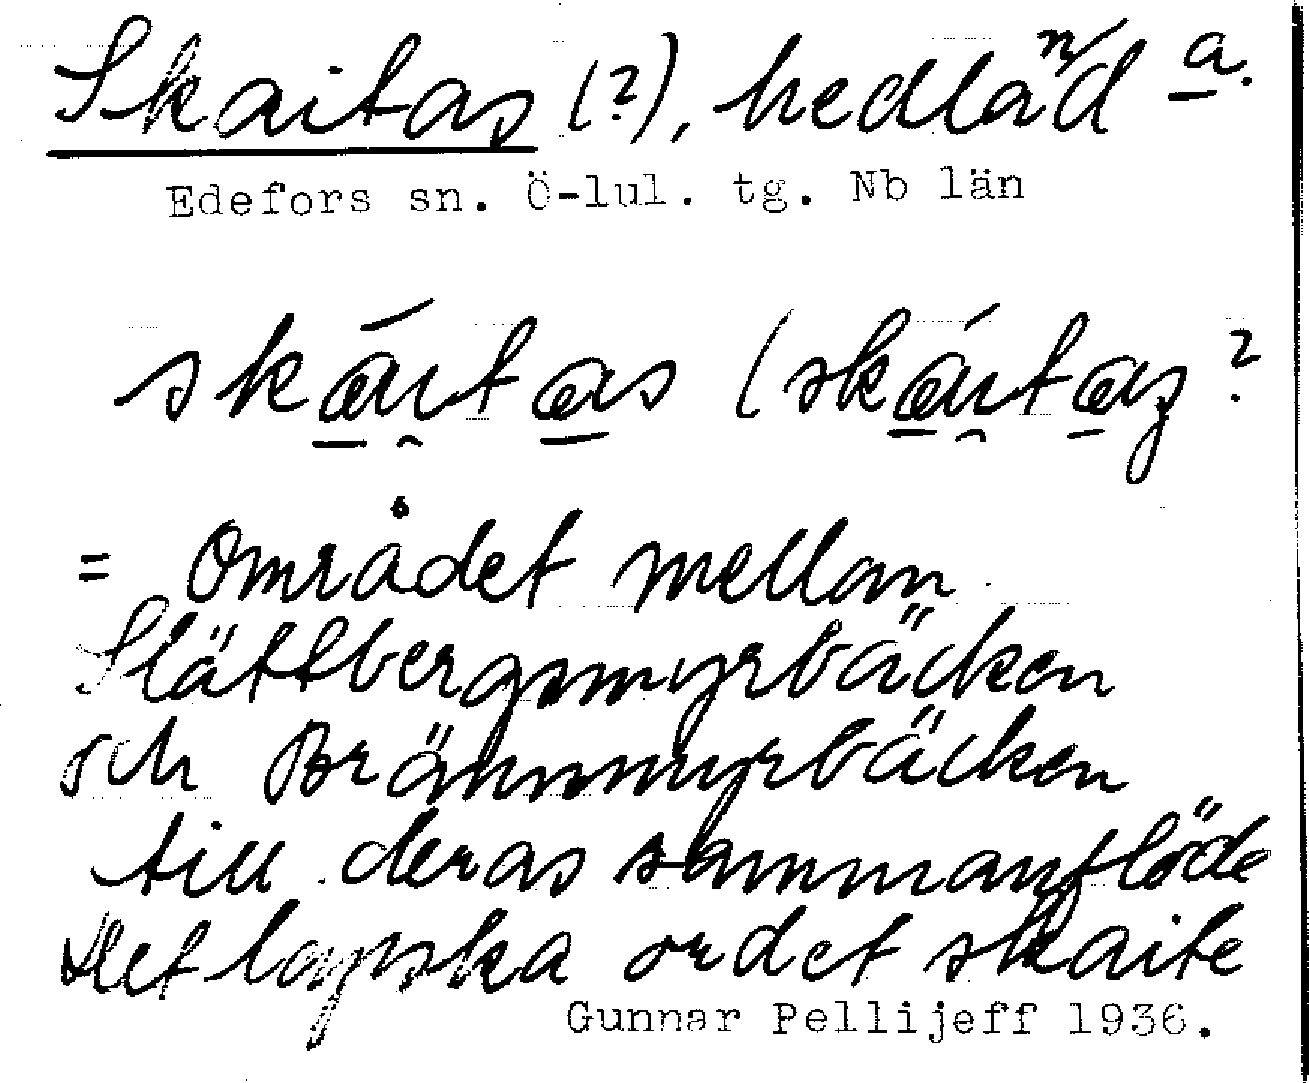 Skaitas (?), hedland a.
Edefors sn. Ö-lul. tg. Nb län
skáitas (skáitaz ?
= Området mellan
Slättbergsmyrbäcken
och Brännmyrbäcken
till deras sammanflöde
Det lapska ordet skaite
Gunnar Pellijeff 1936.